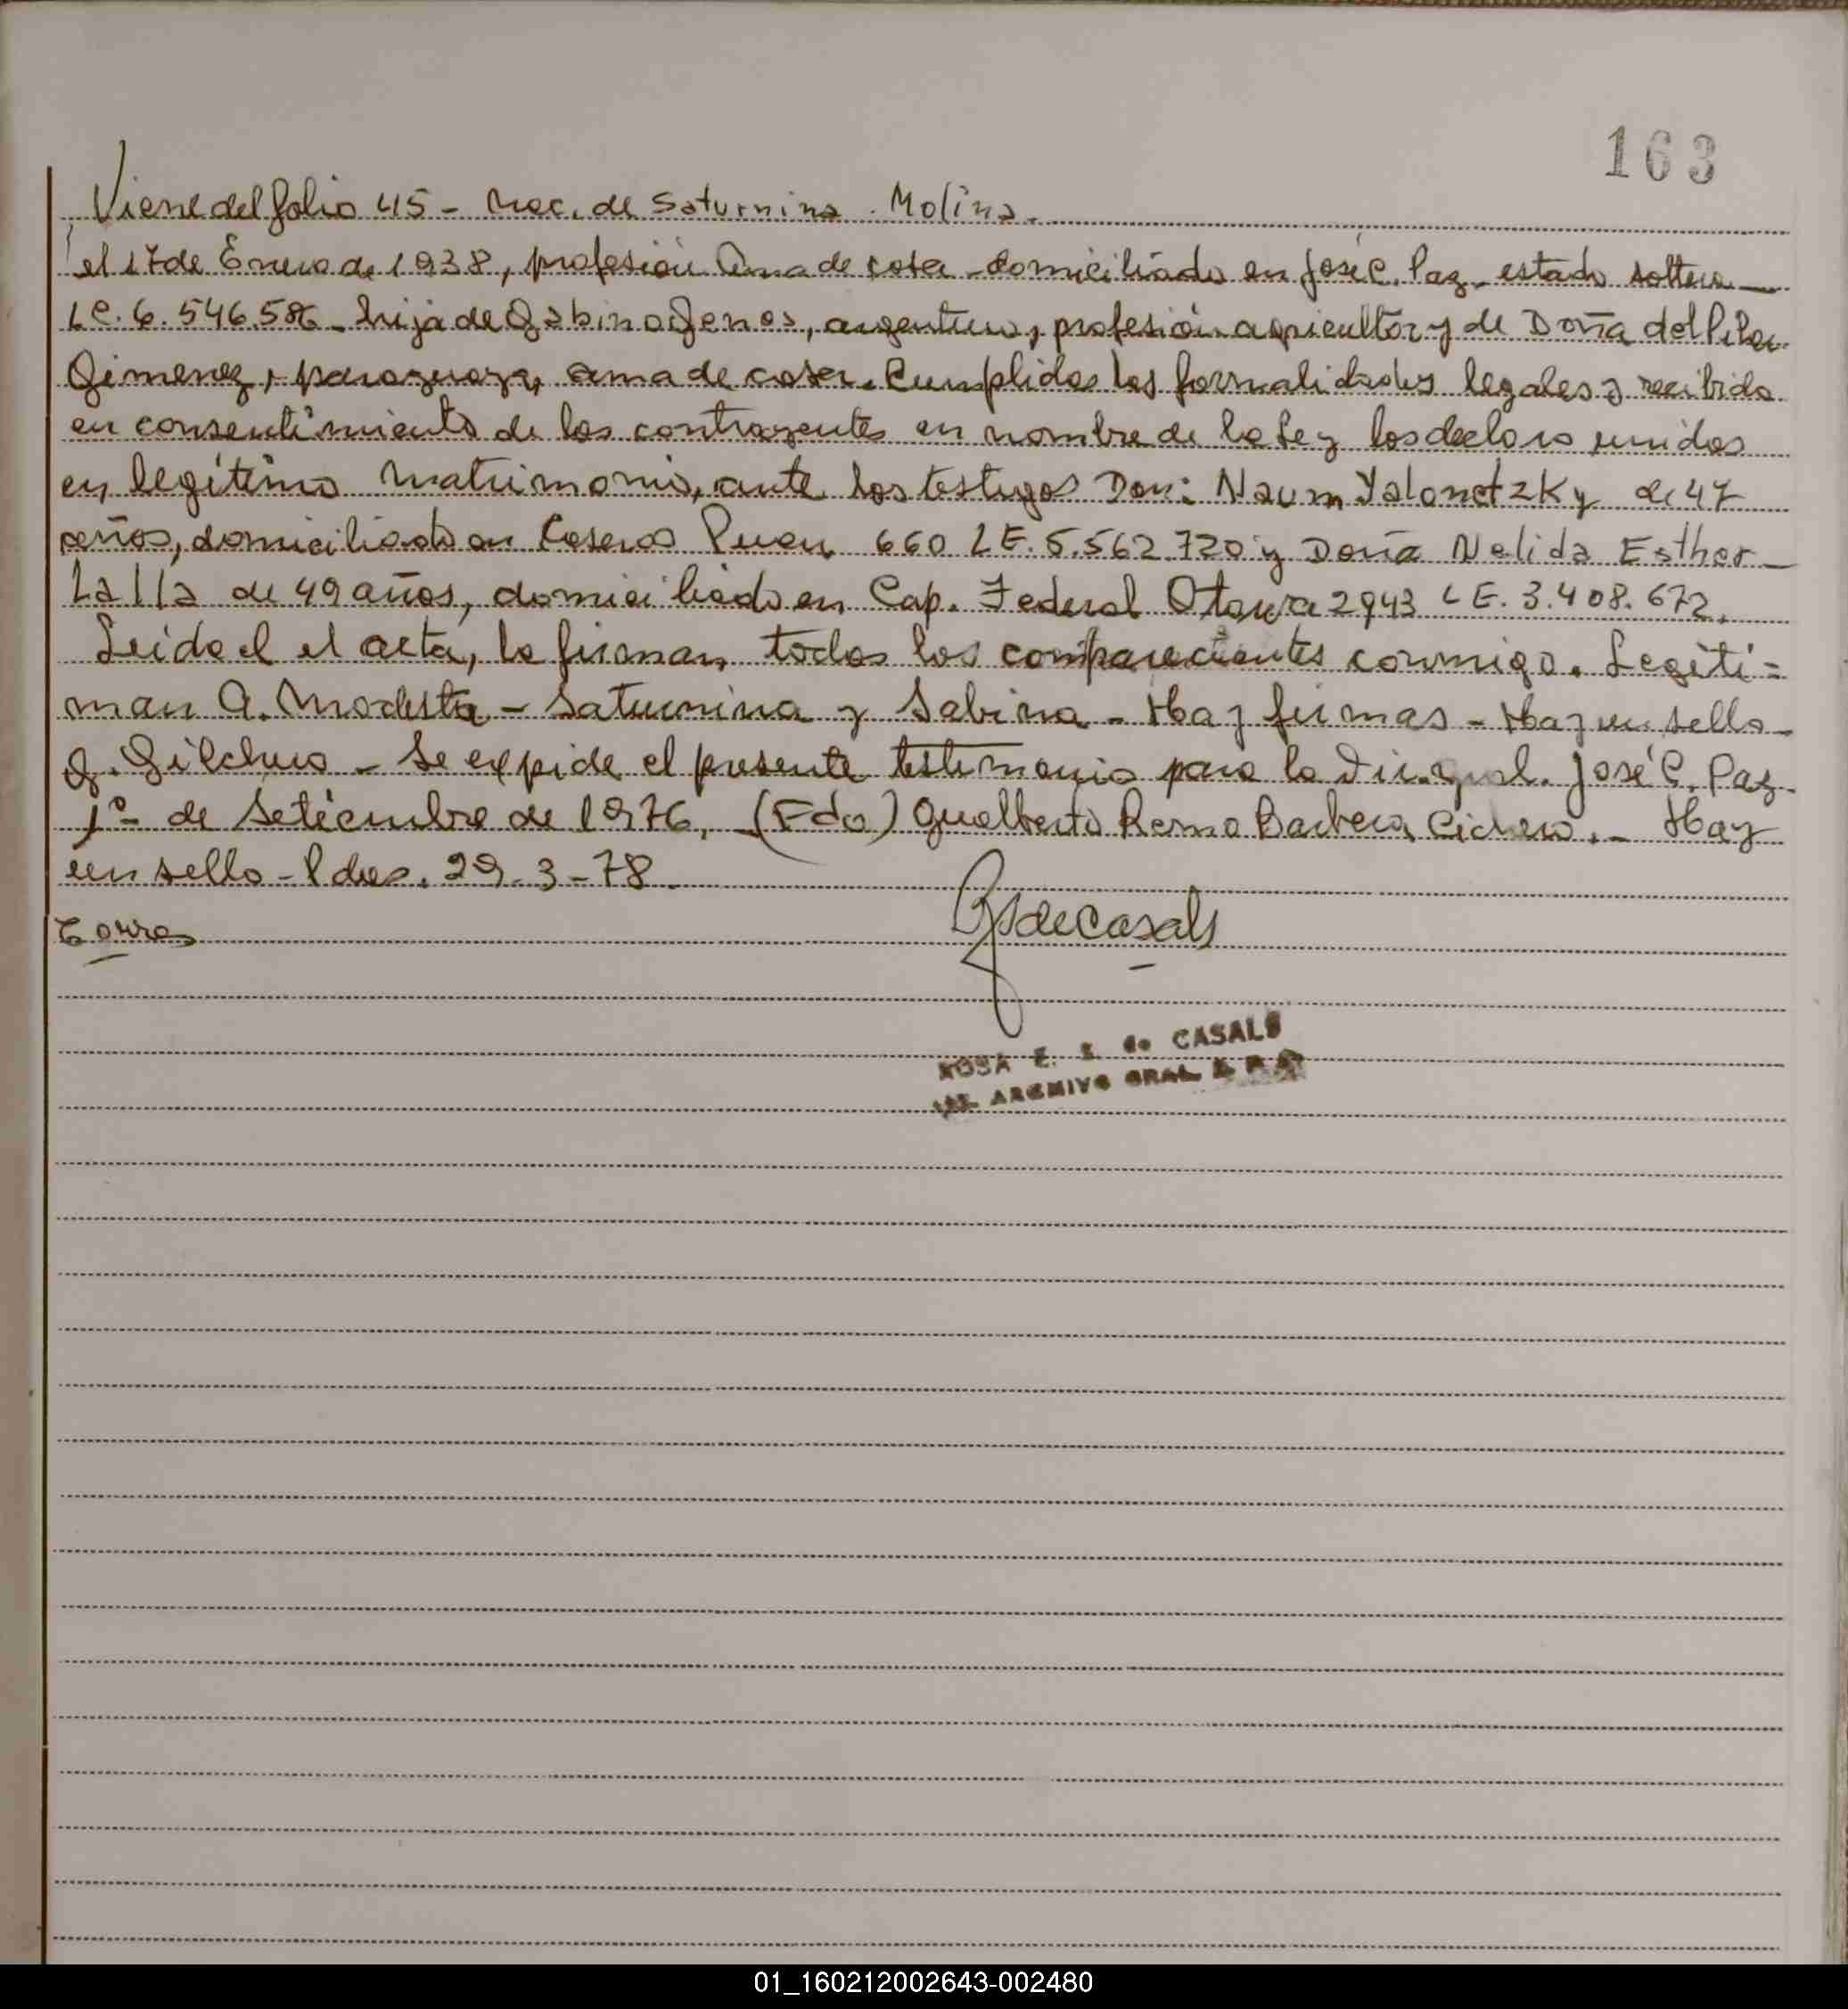 163
Viene del folio 45 - Nac. de Saturnina Molina.
el 17 de Enero de 1938, profesión Ama de casa - domiciliado en José C. Paz - estado soltera
LC. 6.546.586 - hija de Gabino Genes, argentino, profesión agricultor y de Doña del Pilar
Gimenez, paraguaya, ama de casa. Cumplidas las formalidades legales y recibido
en consentimiento de los contrayentes en nombre de la Ley los declaro unidos
en legítimo matrimonio, ante los testigos Don: Naum Yalonetzky de 47
años, domiciliado en Caseros Puan 660 LE. 5.562.720 y Doña Nelida Esther
Lalla de 49 años, domiciliado en Cap. Federal Otawa 2943 LE. 3.408.672.
Leida el el acta, la firman todos los comparecientes conmigo. Legiti=
man a. Modesta - Saturnina y Sabina - Hay firmas - Hay un sello -
G. Gilchero - Se expide el presente testimonio para la Dir. gral. José C. Paz -
1º de Setiembre de 1976. (Fdo) Gualberto Remo Barbera Cichero. - Hay
un sello - Pdas. 29-3-78
Torres
de Casals
ROSA E. S. de CASALS
ARCHIVO GRAL.
01_160212002643-002480